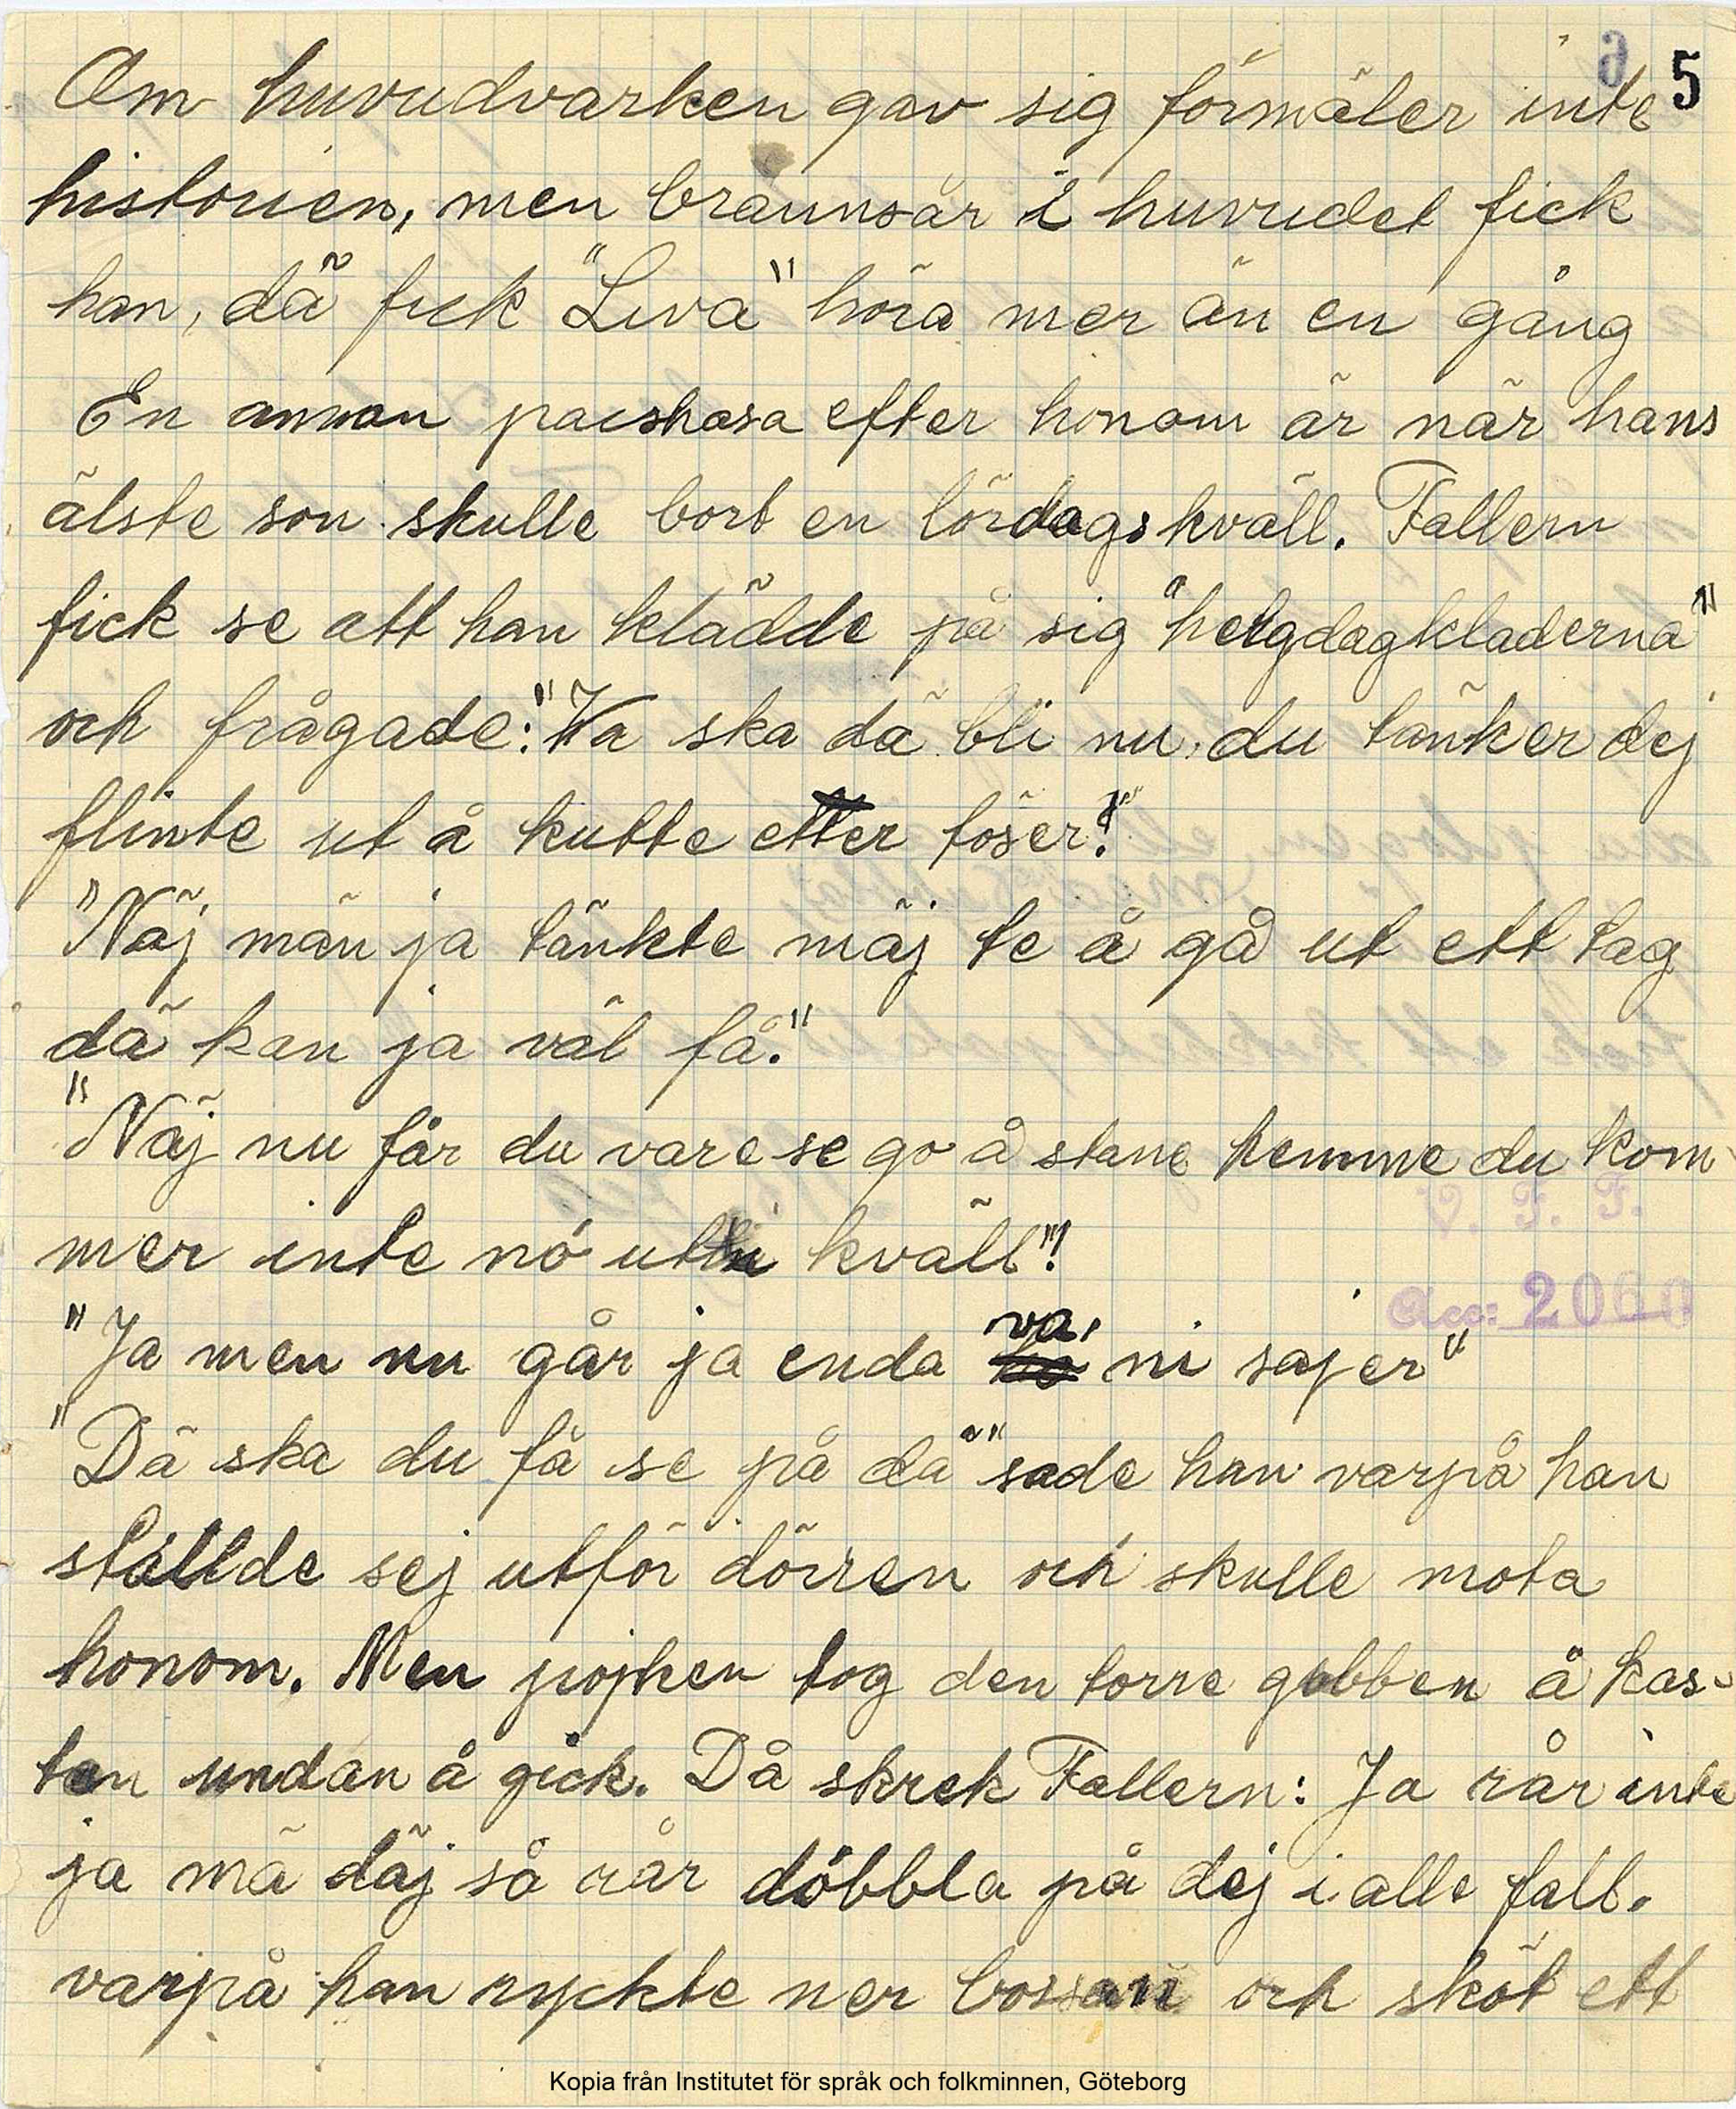 5
Om huvudvärken gav sig förmäler inte
historien, men brännsår i huvudet fick
han, dä fick "Liva" höra mer än en gång
En annan paschasa efter honom är när hans
älste son skulle bort en lördagskväll. Fallern
fick se att han klädde på sig "helgdagkläderna"
och frågade: "Va ska dä bli nu, du tänker dej
flinte ut å kutte etter töser?"
"Näj män ja tänkte mäj te å gå ut ett tag
dä kan ja väl få."
"Näj nu får du vare se go å stane hemme du kom
mer inte nó ut i kväll"!
"Ja men nu går ja enda va ni sajer"
"Dä ska du få se på dä" sade han varpå han
ställde sej utför dörren och skulle mota
honom. Men pojken tog den torre gubben å kas-
tan undan å gick. Då skrek Fallern: Ja rår inte
ja mä däj så rår döbbla på dej i alle fall.
varpå han ryckte ner bössan och sköt ett
V. F. F.
Acc: 2060
Kopia från Institutet för språk och folkminnen, Göteborg